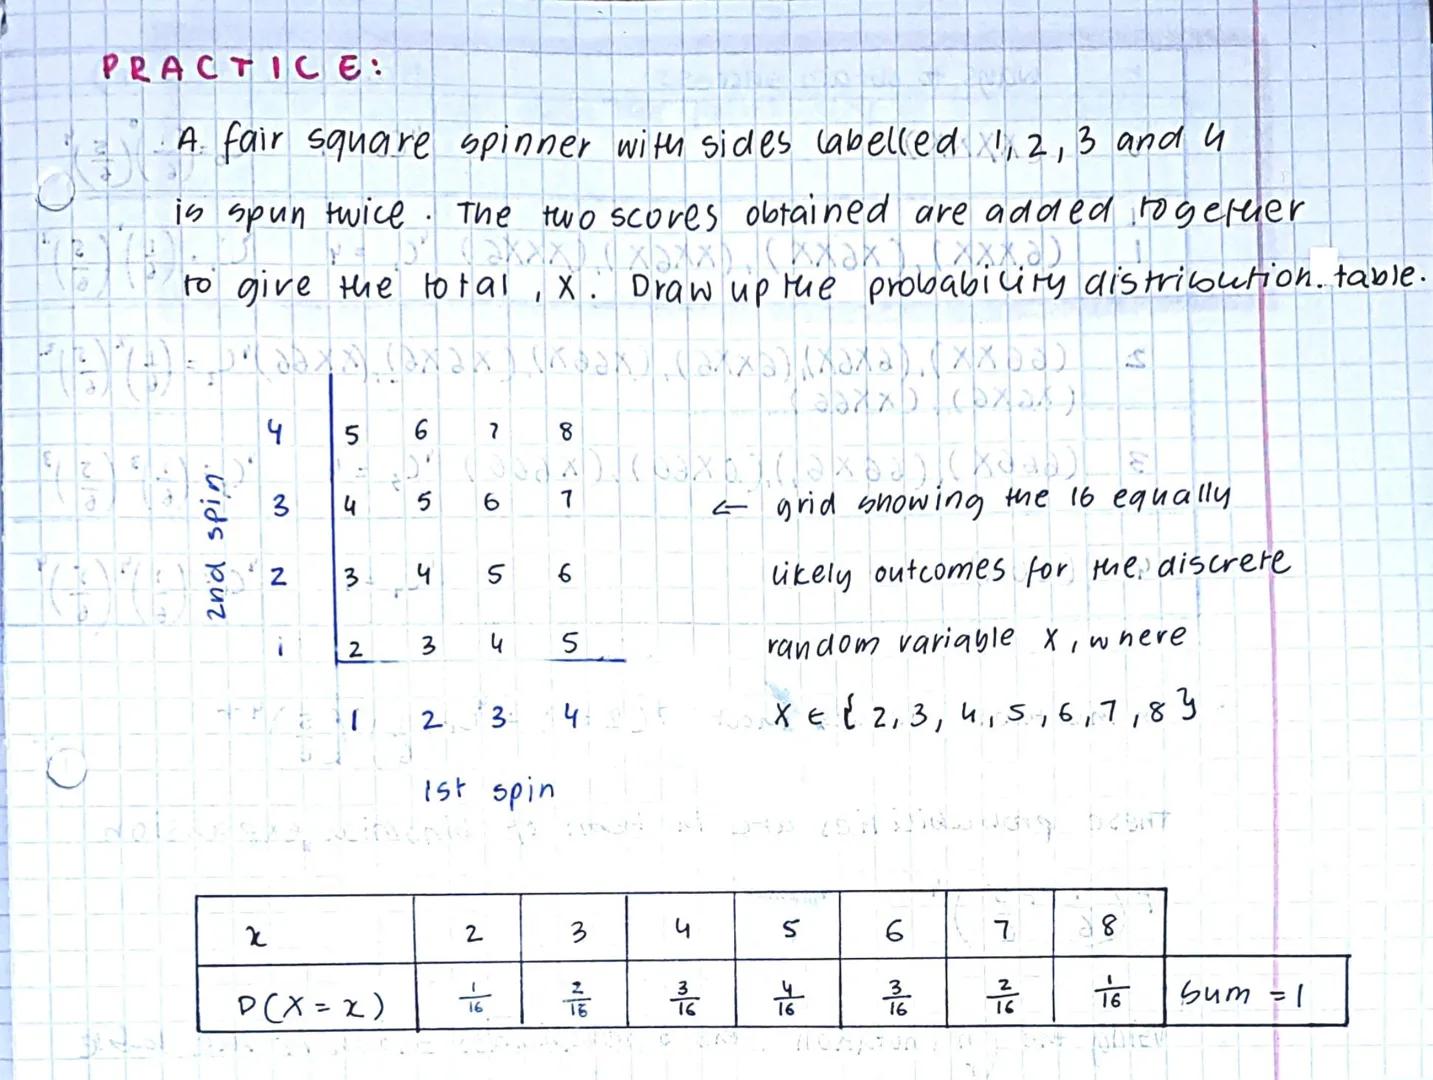 PRACTICE:
A fair square spinner with sides labelled 1, 2, 3 and 4
is spun twice. The two scores obtained are added together
to give the total, X. Draw up the probability distribution table.
4 5 6 7 8
2nd spin
3 4 5 6 7 ← grid showing the 16 equally
2 3 4 5 6 likely outcomes for the discrete
1 2 3 4 5 random variable X, where
1 2 3 4 X ∈ { 2, 3, 4, 5, 6, 7, 8 }
1st spin
x 2 3 4 5 6 7 8
P(X = x) 1/16 2/16 3/16 4/16 3/16 2/16 1/16 Sum = 1